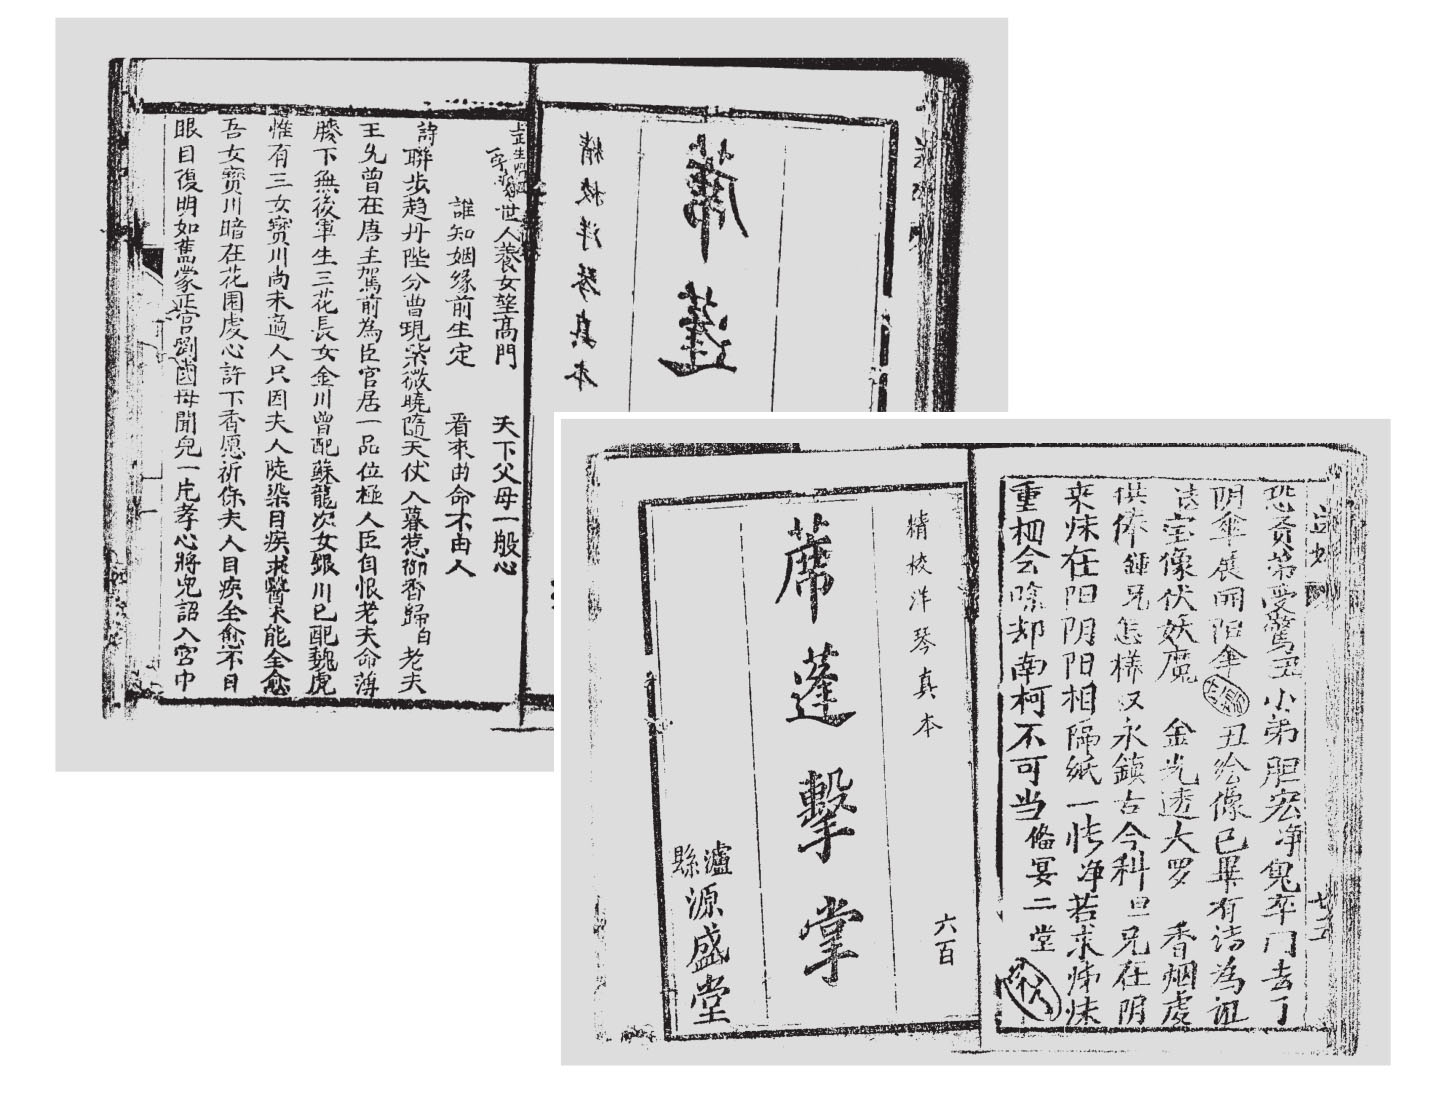 世人養女望高門 天下父母一般心
誰知姻緣前生定 看來由命不由人
詩聯步趋丹陛分曹現紫微曉隨天仗入暮惹御香歸白老夫
王允曾在唐主駕前為臣官居一品位極人臣自恨老夫命薄
膝下無後軍生三花長女金川曾配蘇龍次女銀川已配魏虎
惟有三女寳川尚未適人只因夫人陡染目疾求醫不能全愈
吾女寳川暗在花園處心許下香愿祈保夫人目疾全愈不日
眼目復明如舊蒙正宫劉國母聞兒一片孝心將兒詔入宫中
精校洋琴真本
蓆蓬
恐贤弟受驚丑小弟胆宏净鬼卒门去了
阴伞展開阳伞 丑绘像已畢有诗為証
宝像伏妖魔 金光透大罗 香烟處
供俸鍾兄怎樣又永鎮古今科旦兄在阴
來妹在阳阴阳相隔紙一張净若求姊妹
重相会除却南柯不可当 偹宴二堂
精校洋琴真本
六百
蓆蓬擊掌
瀘縣
源盛堂